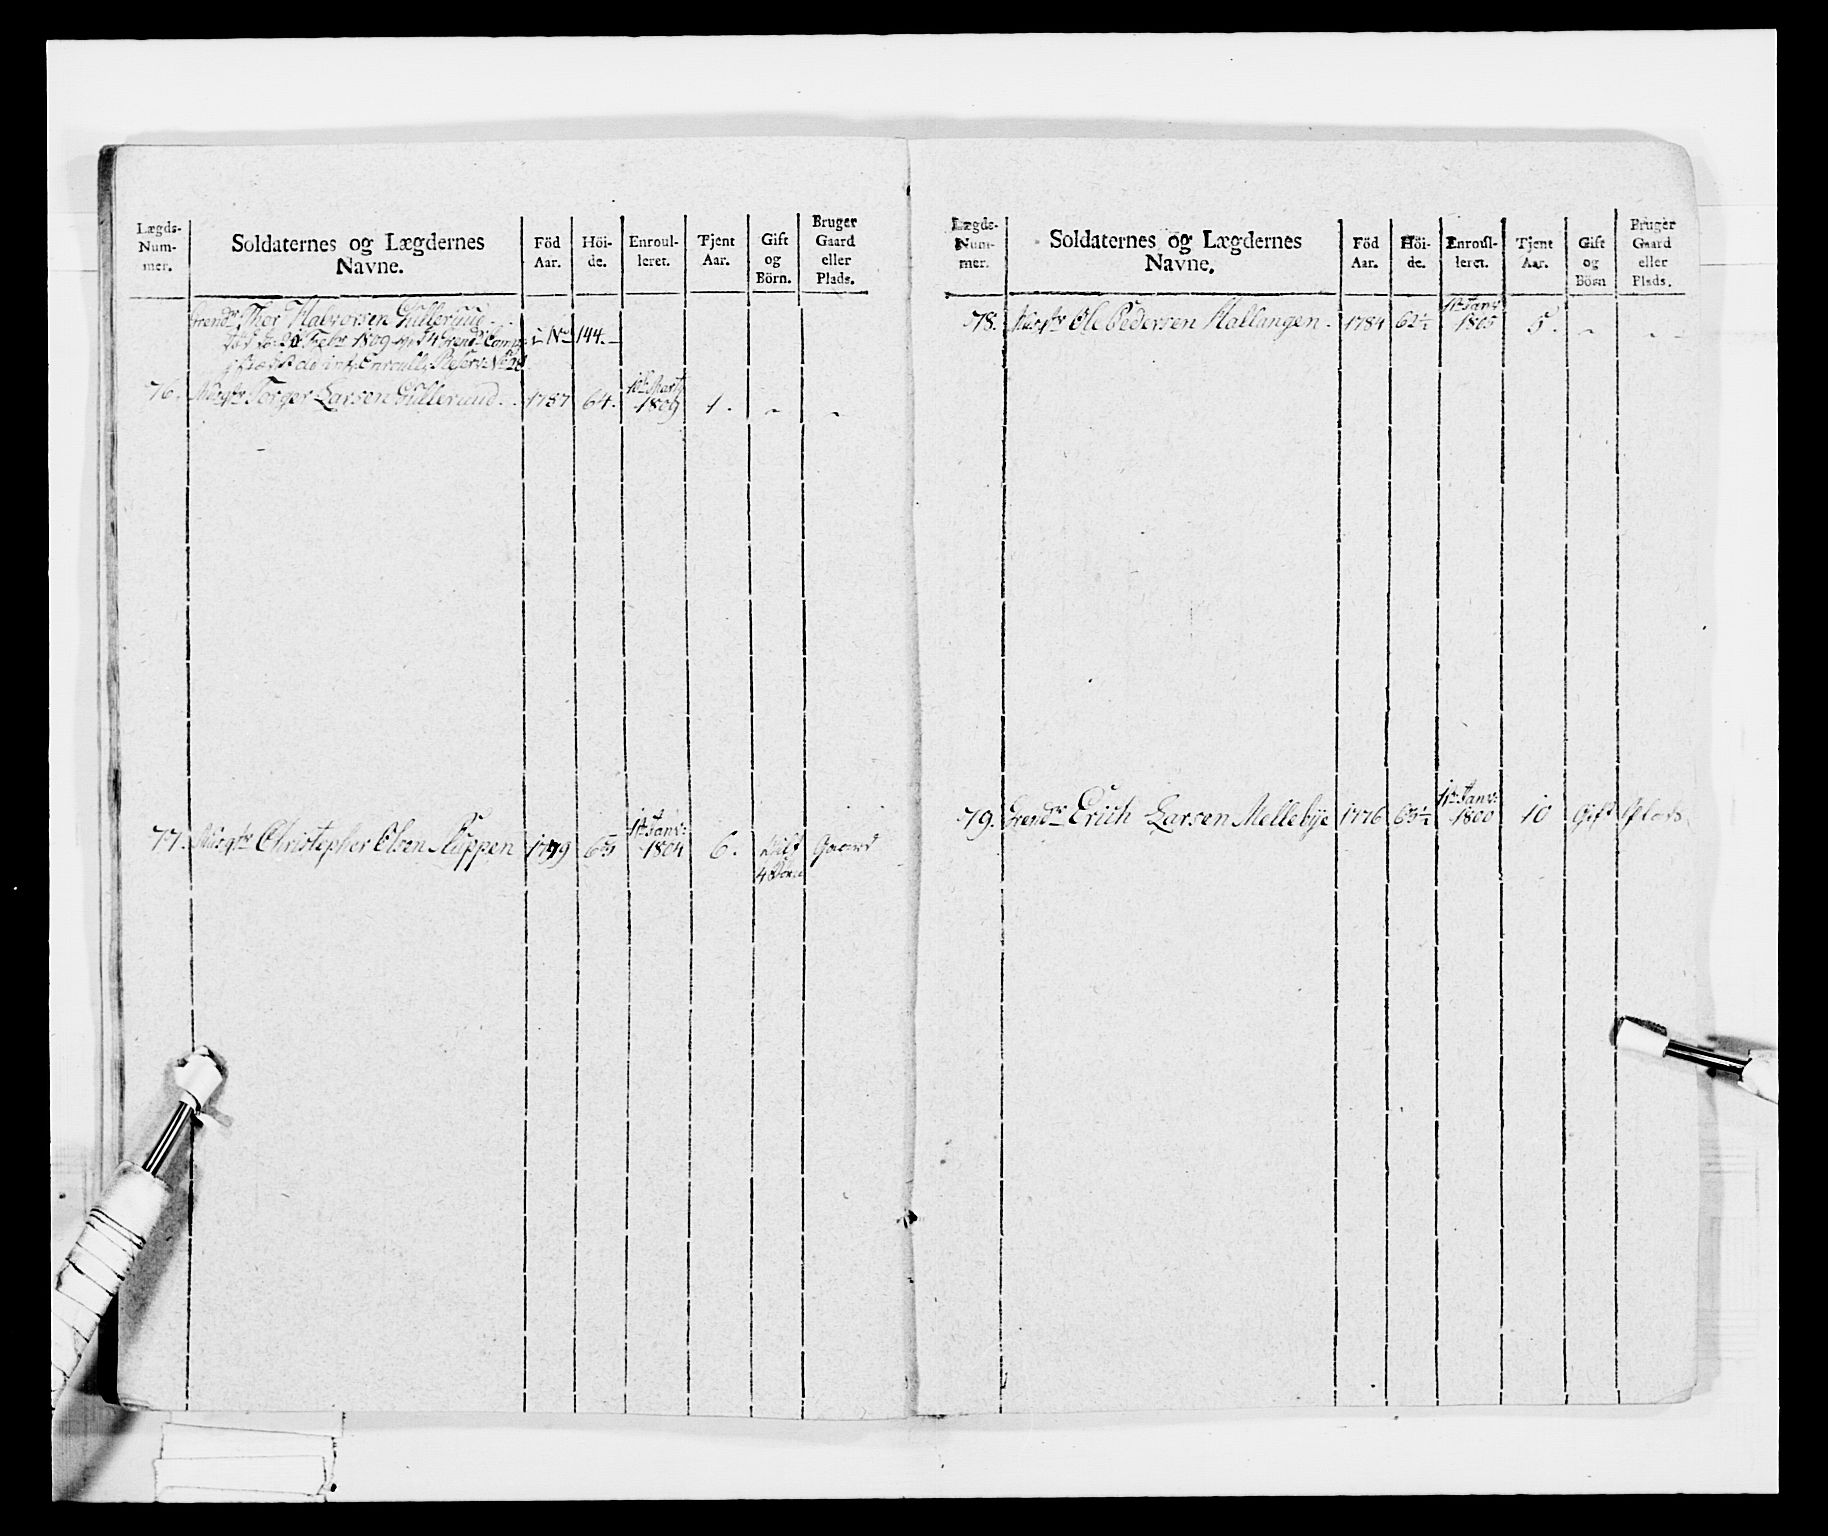 Lægds- Num- mer.
Soldaternes og Lægdernes Navne.
Föd Aar.
Höi- de.
Enroul- leret.
Tjent Aar.
Gift og Börn.
Bruger Gaard eller Plads.
Grendr Thor Halvorsen Gullerud.
1809 4 Grend: Comp: i No 144.
Enroull: Reserv:
76. Musqtr Torger Larsen Gullerud. 1787 64. 1809 1. - -
77. Musqtr Christopher Olsen 1779 65 1te Janv: 1804 6. Gift 4 Börn Gaard
Lægds- Num- mer.
Soldaternes og Lægdernes Navne.
Föd Aar.
Höi- de.
Enroul- leret.
Tjent Aar.
Gift og Börn
Bruger Gaard eller Plads.
78. Musqtr Ole Pedersen Hallangen. 1784 62½ 1te Janv: 1805 5. - -
79. Grendr Erich Larsen Mellebye 1776 65½ 1te Janv: 1800 10 Gift Plads